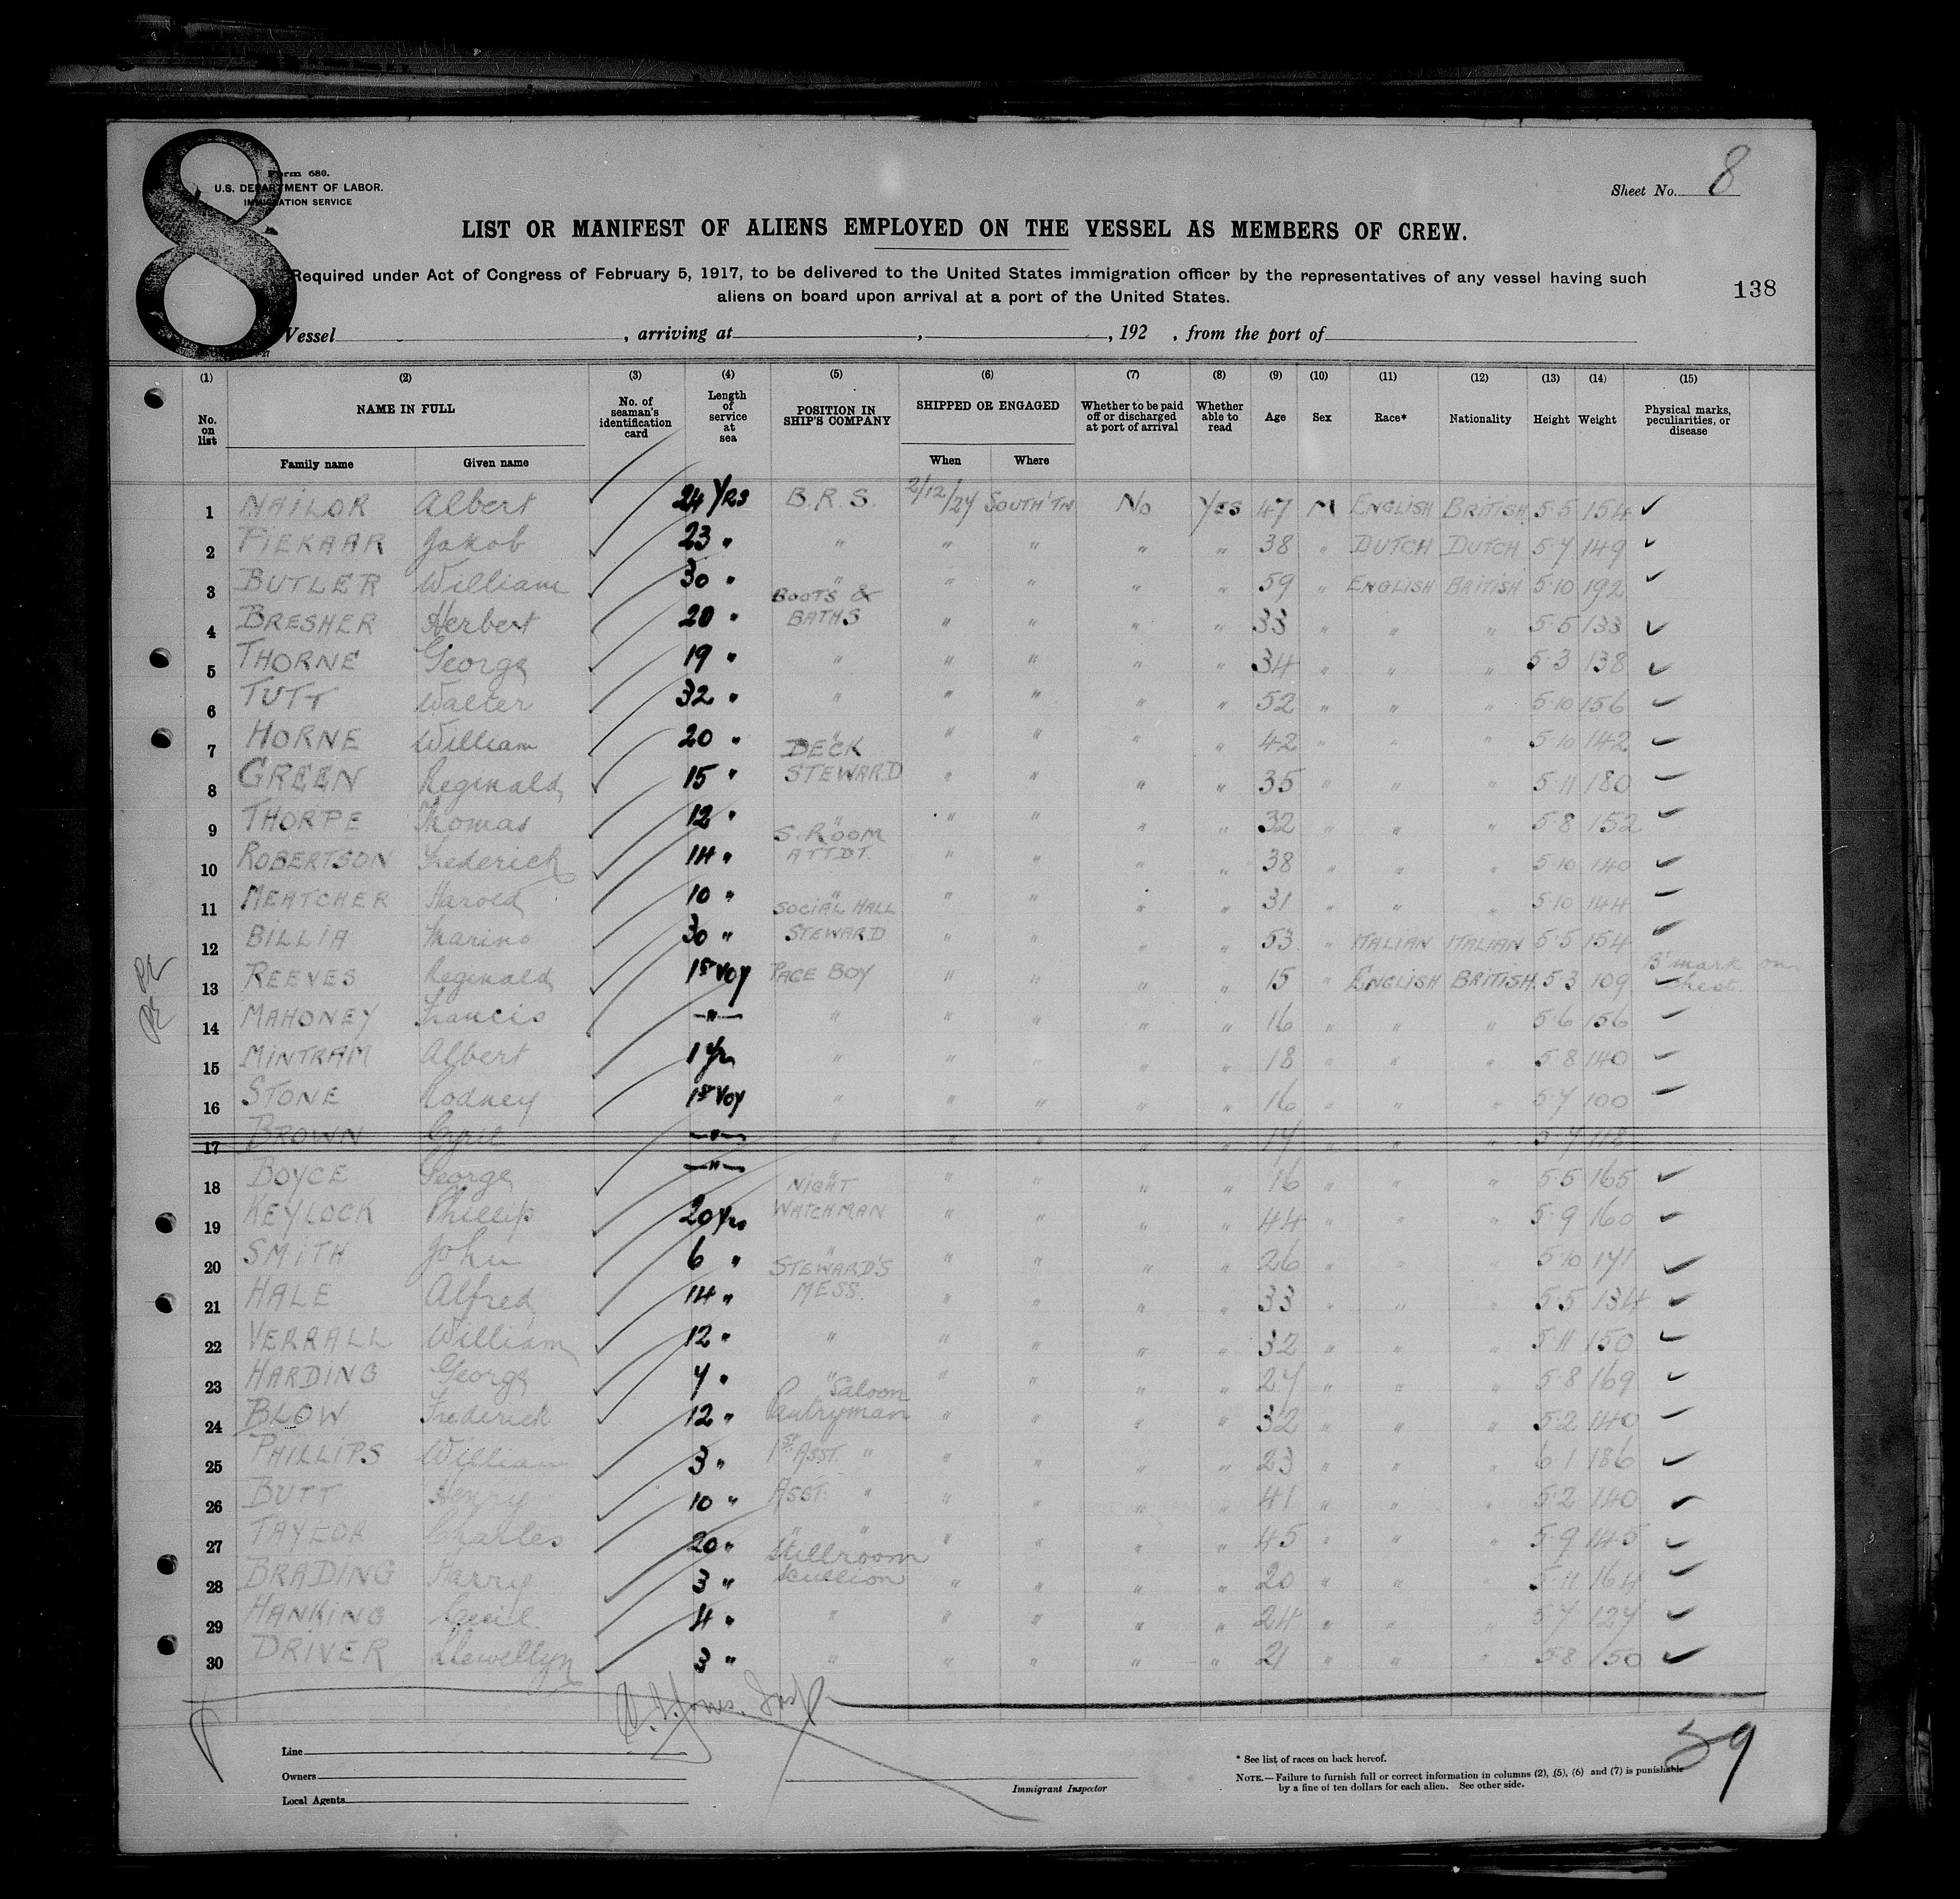 8
Form 680.
U.S. DEPARTMENT OF LABOR.
IMMIGRATION SERVICE
Sheet No. 8
LIST OR MANIFEST OF ALIENS EMPLOYED ON THE VESSEL AS MEMBERS OF CREW.
Required under Act of Congress of February 5, 1917, to be delivered to the United States immigration officer by the representatives of any vessel having such
aliens on board upon arrival at a port of the United States.
138
Vessel , arriving at , , 192 , from the port of
(1) (2) (3) (4) (5) (6) (7) (8) (9) (10) (11) (12) (13) (14) (15)
No. on list NAME IN FULL No. of seaman's identification card Length of service at sea POSITION IN SHIP'S COMPANY SHIPPED OR ENGAGED Whether to be paid off or discharged at port of arrival Whether able to read Age Sex Race* Nationality Height Weight Physical marks, peculiarities, or disease
Family name Given name When Where
1 NAILOR Albert 24 Yrs B.R.S. 2/12/27 SOUTH'TN No Yes 47 M ENGLISH BRITISH 5·5 154 ✓
2 FIEKAAR Jakob 23 " " " " " " 38 " DUTCH DUTCH 5·7 149 ✓
3 BUTLER William 30 " " " " " " 59 " ENGLISH BRITISH 5·10 192 ✓
4 BRESHER Herbert 20 " BOOTS & BATHS " " " " 33 " " " 5·5 133 ✓
5 THORNE George 19 " " " " " " 34 " " " 5·3 138 ✓
6 TUTT Walter 32 " " " " " " 52 " " " 5·10 156 ✓
7 HORNE William 20 " " " " " " 42 " " " 5·10 142 ✓
8 GREEN Reginald 15 " DECK STEWARD " " " " 35 " " " 5·11 180 ✓
9 THORPE Thomas 12 " " " " " " 32 " " " 5·8 152 ✓
10 ROBERTSON Frederick 14 " S. ROOM ATTDT. " " " " 38 " " " 5·10 140 ✓
11 MEATCHER Harold 10 " " " " " " 31 " " " 5·10 144 ✓
12 BILLIA Marino 30 " SOCIAL HALL STEWARD " " " " 53 " ITALIAN ITALIAN 5·5 154 ✓
13 REEVES Reginald 1st Voy PAGE BOY " " " " 15 " ENGLISH BRITISH. 5·3 109 B'mark on chest. ✓
14 MAHONEY Francis —"— " " " " " 16 " " " 5·6 156 ✓
15 MINTRAM Albert 1 yr " " " " " 18 " " " 5·8 140 ✓
16 STONE Rodney 1st Voy " " " " " 16 " " " 5·7 100 ✓
17 BROWN Cyril —"— " " " " " 17 " " " 5·7 118
18 BOYCE George —"— " " " " " 16 " " " 5·5 165 ✓
19 KEYLOCK Phillip 20 yrs NIGHT WATCHMAN " " " " 44 " " " 5·9 160 ✓
20 SMITH John 6 " " " " " " 26 " " " 5·10 171 ✓
21 HALE Alfred 14 " STEWARD'S MESS. " " " " 33 " " " 5·5 134 ✓
22 VERRALL William 12 " " " " " " 32 " " " 5·11 150 ✓
23 HARDING George 7 " " " " " " 27 " " " 5·8 169 ✓
24 BLOW Frederick 12 " Saloon Pantryman " " " " 32 " " " 5·2 140 ✓
25 PHILLIPS William 3 " 1st Asst. " " " " " 23 " " " 6·1 186 ✓
26 BUTT Henry 10 " Asst. " " " " " 41 " " " 5·2 140 ✓
27 TAYLOR Charles 20 " " " " " " " 45 " " " 5·9 145 ✓
28 BRADING Harry 3 " Stillroom Scullion " " " " 20 " " " 5·11 164 ✓
29 HANKING Cecil. 4 " " " " " " 24 " " " 5·7 127 ✓
30 DRIVER Llewellyn 3 " " " " " " 21 " " " 5·8 150 ✓
39
Line
Owners
Local Agents
Immigrant Inspector
* See list of races on back hereof.
NOTE.—Failure to furnish full or correct information in columns (2), (5), (6) and (7) is punishable
by a fine of ten dollars for each alien. See other side.